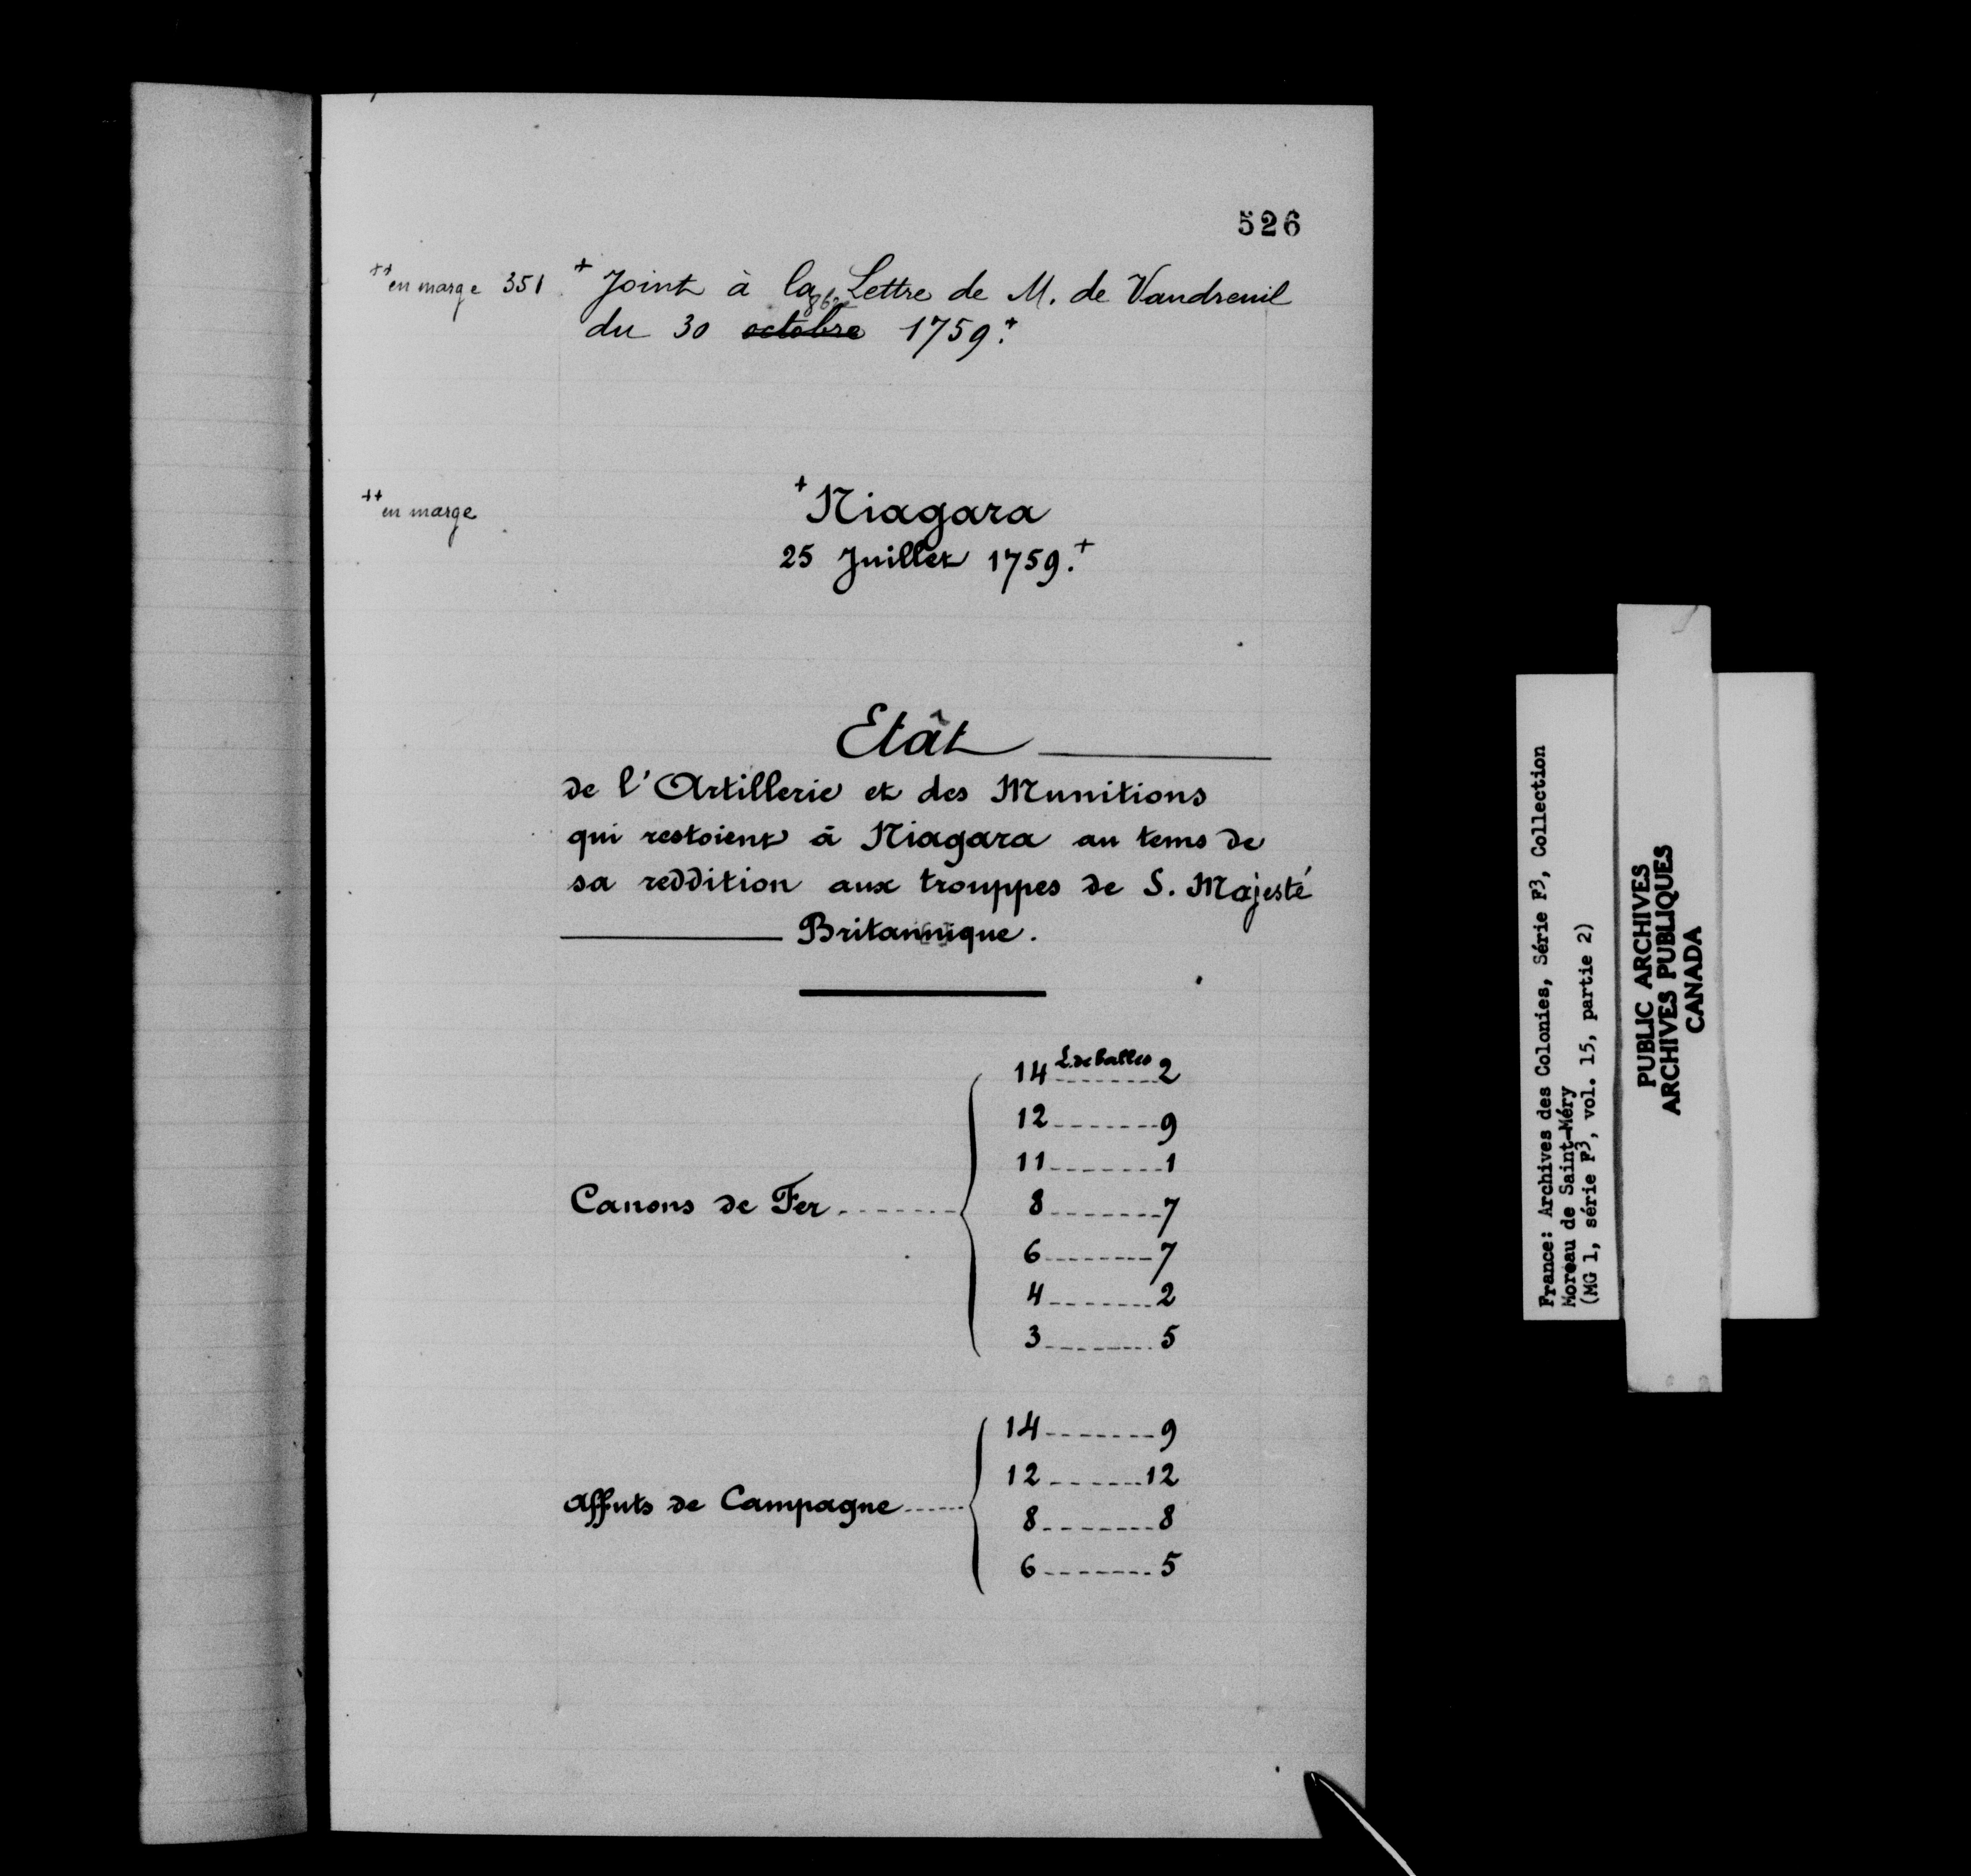 526
++ en marge 351 + Joint à la Lettre de M. de Vaudreuil
8bre
du 30 octobre 1759.+
++ en marge
+ Niagara
25 Juillet 1759.+
Etât
de l'Artillerie et des Munitions
qui restoient à Niagara au tems de
sa reddition aux trouppes de S. Majesté
Britannique.
L. de balles
14 -------- 2
12 -------- 9
11 -------- 1
Canons de Fer -------- 8 -------- 7
6 -------- 7
4 -------- 2
3 -------- 5
14 -------- 9
12 -------- 12
Affuts de Campagne ------ 8 -------- 8
6 -------- 5
France: Archives des Colonies, Série F3, Collection
Moreau de Saint-Méry
(MG 1, série F3, vol. 15, partie 2)
PUBLIC ARCHIVES
ARCHIVES PUBLIQUES
CANADA